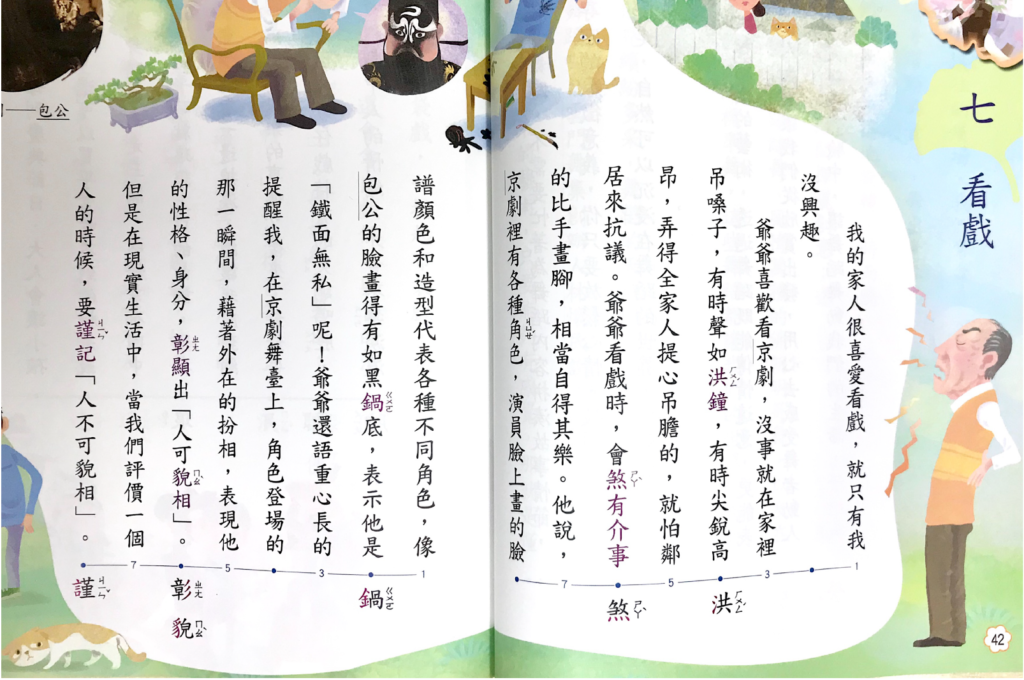 七 看戲
我的家人很喜愛看戲，就只有我
沒興趣。
爺爺喜歡看京劇，沒事就在家裡
吊嗓子，有時聲如洪鐘，有時尖銳高
昂，弄得全家人提心吊膽的，就怕鄰
居來抗議。爺爺看戲時，會煞有介事
的比手畫腳，相當自得其樂。他說，
京劇裡有各種角色，演員臉上畫的臉
1
3
5
7
洪ㄏㄨㄥˊ
煞ㄕㄚˋ
42
譜顏色和造型代表各種不同角色，像
包公的臉畫得有如黑鍋底，表示他是
「鐵面無私」呢！爺爺還語重心長的
提醒我，在京劇舞臺上，角色登場的
那一瞬間，藉著外在的扮相，表現他
的性格、身分，彰顯出「人可貌相」。
但是在現實生活中，當我們評價一個
人的時候，要謹記「人不可貌相」。
1
3
5
7
鍋ㄍㄨㄛ
彰ㄓㄤ
貌ㄇㄠˋ
謹ㄐㄧㄣˇ
——包公